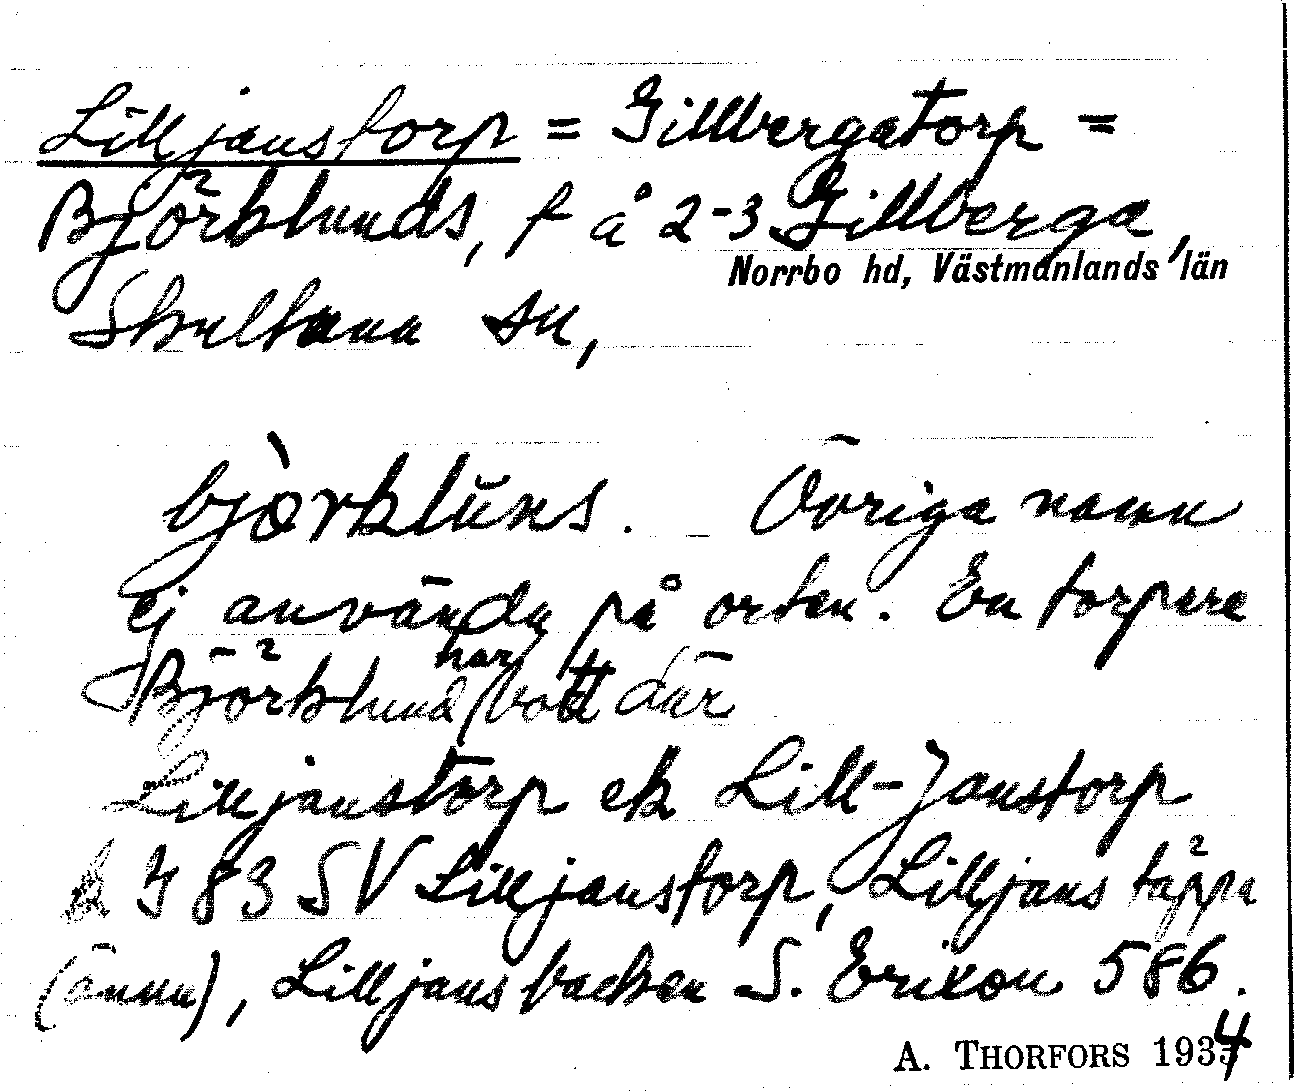 Lilljanstorp = Gillbergatorp =
Björklunds, f å 2-3 Gillberga,
Norrbo hd, Västmanlands län
Skultuna sn,
bjòrklŭns. Övriga namn
ej använda på orten. En torpare
Björklund har bott där
Lilljanstorp ek Lill-Janstorp
J 83 SV Lilljanstorp, Lilljans täppa
(ännu), Lilljansbacken S. Erixon 586.
A. THORFORS 1934